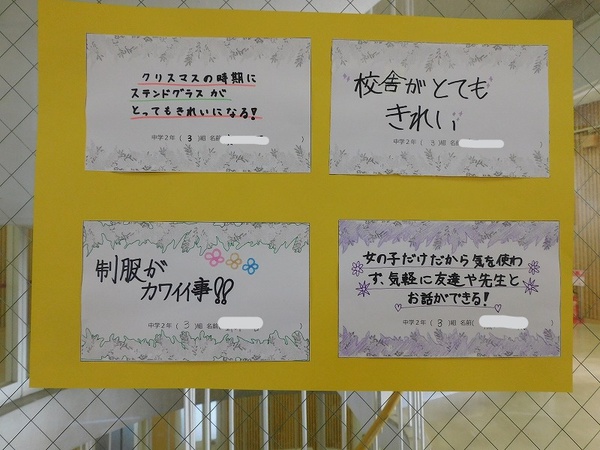 クリスマスの時期に
ステンドグラスが
とってもきれいになる!
中学2年 (3)組 名前(
校舎がとても
きれい
中学2年 (3)組 名前
制服が
カワイイ事!!
中学2年 (3)組 名前
女の子だけだから気を使わ
ず、気軽に友達や先生と
お話ができる!
中学2年 (3)組 名前( )